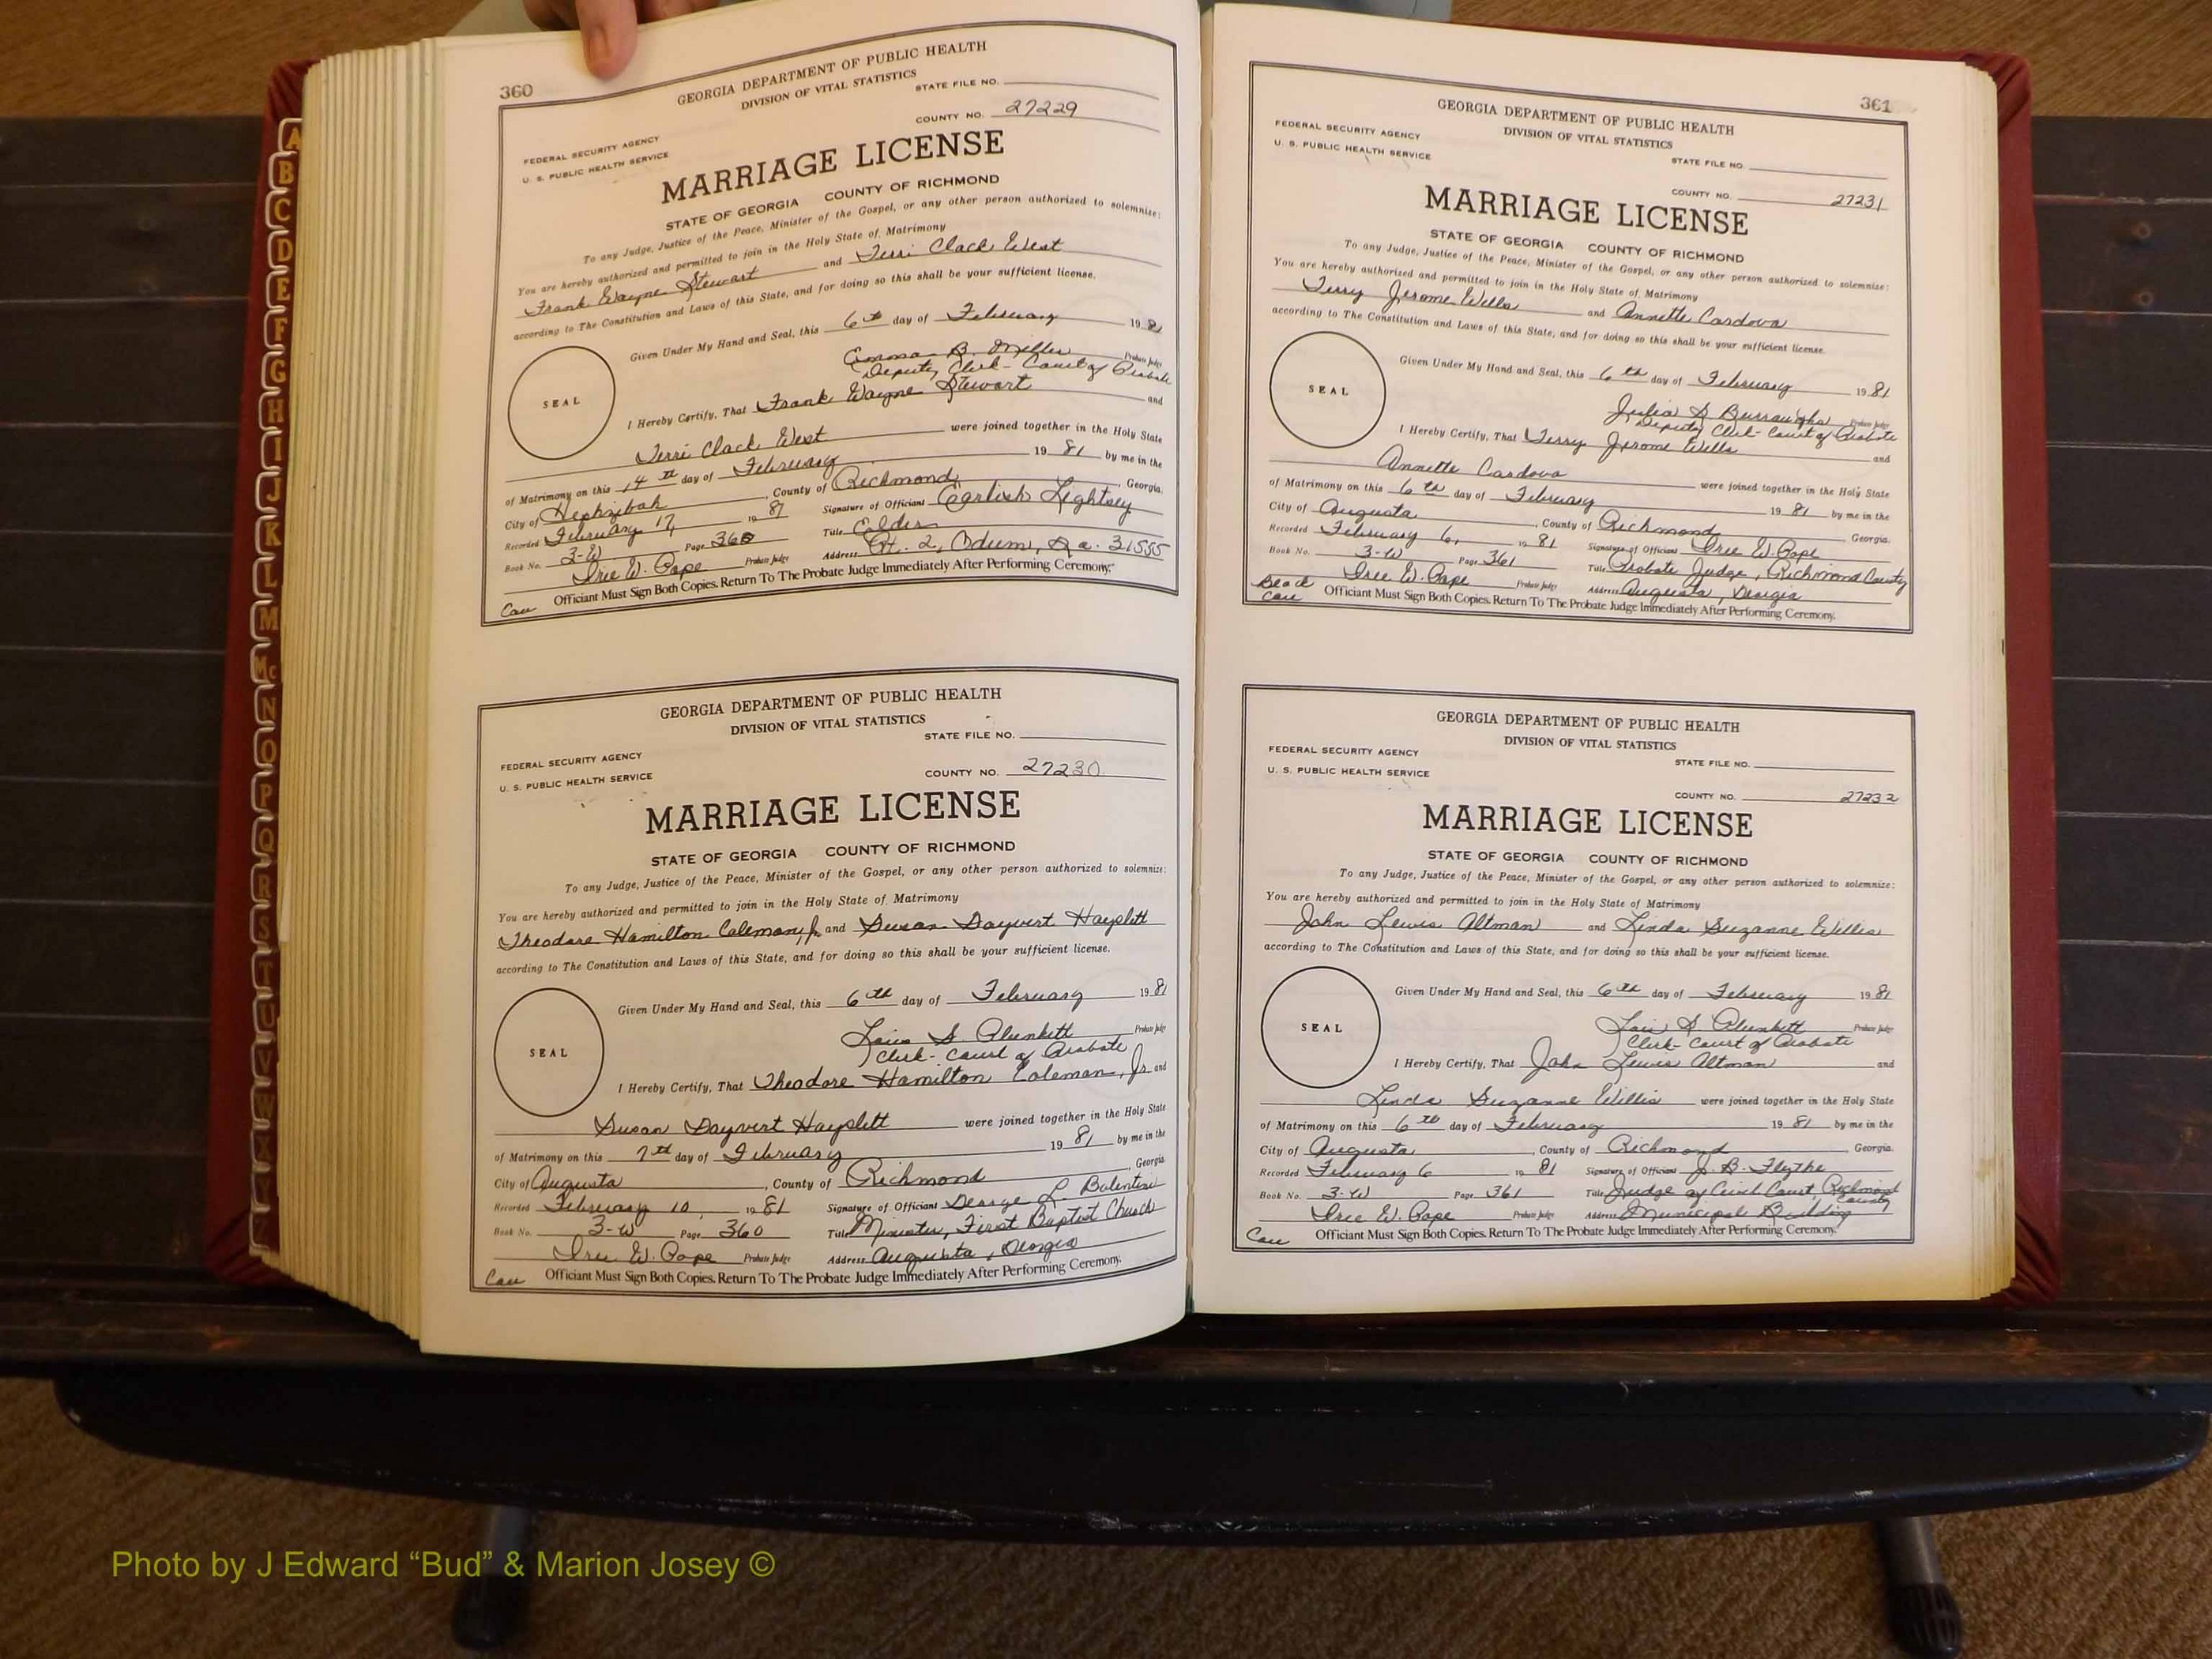 360
GEORGIA DEPARTMENT OF PUBLIC HEALTH
DIVISION OF VITAL STATISTICS
STATE FILE NO.
COUNTY NO. 27229
FEDERAL SECURITY AGENCY
U. S. PUBLIC HEALTH SERVICE
MARRIAGE LICENSE
STATE OF GEORGIA COUNTY OF RICHMOND
To any Judge, Justice of the Peace, Minister of the Gospel, or any other person authorized to solemnize:
You are hereby authorized and permitted to join in the Holy State of Matrimony
Frank Wayne Stewart and Terri Clack West
according to The Constitution and Laws of this State, and for doing so this shall be your sufficient license.
Given Under My Hand and Seal, this 6th day of February 1981
Emma B. Miller Probate Judge
Deputy Clerk - Court of Probate
SEAL
I Hereby Certify, That Frank Wayne Stewart and
Terri Clack West were joined together in the Holy State
of Matrimony on this 14th day of February 1981 by me in the
City of Hephzibah, County of Richmond, Georgia.
Recorded February 17, 1981 Signature of Officiant Lightsey
Book No. 3-W Page 360 Title Elder
Iree W. Pope Probate Judge Address Rt. 2, Odum, Ga. 31555
Cau Officiant Must Sign Both Copies. Return To The Probate Judge Immediately After Performing Ceremony.
GEORGIA DEPARTMENT OF PUBLIC HEALTH
DIVISION OF VITAL STATISTICS
STATE FILE NO.
FEDERAL SECURITY AGENCY
U. S. PUBLIC HEALTH SERVICE
COUNTY NO. 27230
MARRIAGE LICENSE
STATE OF GEORGIA COUNTY OF RICHMOND
To any Judge, Justice of the Peace, Minister of the Gospel, or any other person authorized to solemnize:
You are hereby authorized and permitted to join in the Holy State of Matrimony
Theodore Hamilton Coleman, Jr and Susan Dayvert Hayslett
according to The Constitution and Laws of this State, and for doing so this shall be your sufficient license.
Given Under My Hand and Seal, this 6th day of February 1981
Lois S. Plunkett Probate Judge
Clerk - Court of Probate
SEAL
I Hereby Certify, That Theodore Hamilton Coleman, Jr. and
Susan Dayvert Hayslett were joined together in the Holy State
of Matrimony on this 7th day of February 1981 by me in the
City of Augusta, County of Richmond, Georgia.
Recorded February 10, 1981 Signature of Officiant George L. Balentine
Book No. 3-W Page 360 Title Minister, First Baptist Church
Iree W. Pope Probate Judge Address Augusta, Georgia
Cau Officiant Must Sign Both Copies. Return To The Probate Judge Immediately After Performing Ceremony.
361
GEORGIA DEPARTMENT OF PUBLIC HEALTH
DIVISION OF VITAL STATISTICS
FEDERAL SECURITY AGENCY
U. S. PUBLIC HEALTH SERVICE
STATE FILE NO.
COUNTY NO. 27231
MARRIAGE LICENSE
STATE OF GEORGIA COUNTY OF RICHMOND
To any Judge, Justice of the Peace, Minister of the Gospel, or any other person authorized to solemnize:
You are hereby authorized and permitted to join in the Holy State of Matrimony
Terry Jerome Wells and Annette Cardova
according to The Constitution and Laws of this State, and for doing so this shall be your sufficient license.
Given Under My Hand and Seal, this 6th day of February 1981
Julia S. Burroughs Probate Judge
Deputy Clerk - Court of Probate
SEAL
I Hereby Certify, That Terry Jerome Wells and
Annette Cardova were joined together in the Holy State
of Matrimony on this 6th day of February 1981 by me in the
City of Augusta, County of Richmond Georgia.
Recorded February 6, 1981 Signature of Officiant Iree W. Pope
Book No. 3-W Page 361 Title Probate Judge, Richmond County
Iree W. Pope Probate Judge Address Augusta, Georgia
Cau Officiant Must Sign Both Copies. Return To The Probate Judge Immediately After Performing Ceremony.
GEORGIA DEPARTMENT OF PUBLIC HEALTH
DIVISION OF VITAL STATISTICS
FEDERAL SECURITY AGENCY
U. S. PUBLIC HEALTH SERVICE
STATE FILE NO.
COUNTY NO. 27232
MARRIAGE LICENSE
STATE OF GEORGIA COUNTY OF RICHMOND
To any Judge, Justice of the Peace, Minister of the Gospel, or any other person authorized to solemnize:
You are hereby authorized and permitted to join in the Holy State of Matrimony
John Lewis Altman and Linda Suzanne Willis
according to The Constitution and Laws of this State, and for doing so this shall be your sufficient license.
Given Under My Hand and Seal, this 6th day of February 1981
Lois S. Plunkett Probate Judge
Clerk - Court of Probate
SEAL
I Hereby Certify, That John Lewis Altman and
Linda Suzanne Willis were joined together in the Holy State
of Matrimony on this 6th day of February 1981 by me in the
City of Augusta, County of Richmond Georgia.
Recorded February 6 1981 Signature of Officiant J. B. Flythe
Book No. 3-W Page 361 Title Judge of Civil Court, Richmond County
Iree W. Pope Probate Judge Address Municipal Building
Cau Officiant Must Sign Both Copies. Return To The Probate Judge Immediately After Performing Ceremony.
A
B
C
D
E
F
G
H
I
J
K
L
M
Mc
N
O
P
Q
R
S
T
U
V
W
Photo by J Edward “Bud” & Marion Josey ©